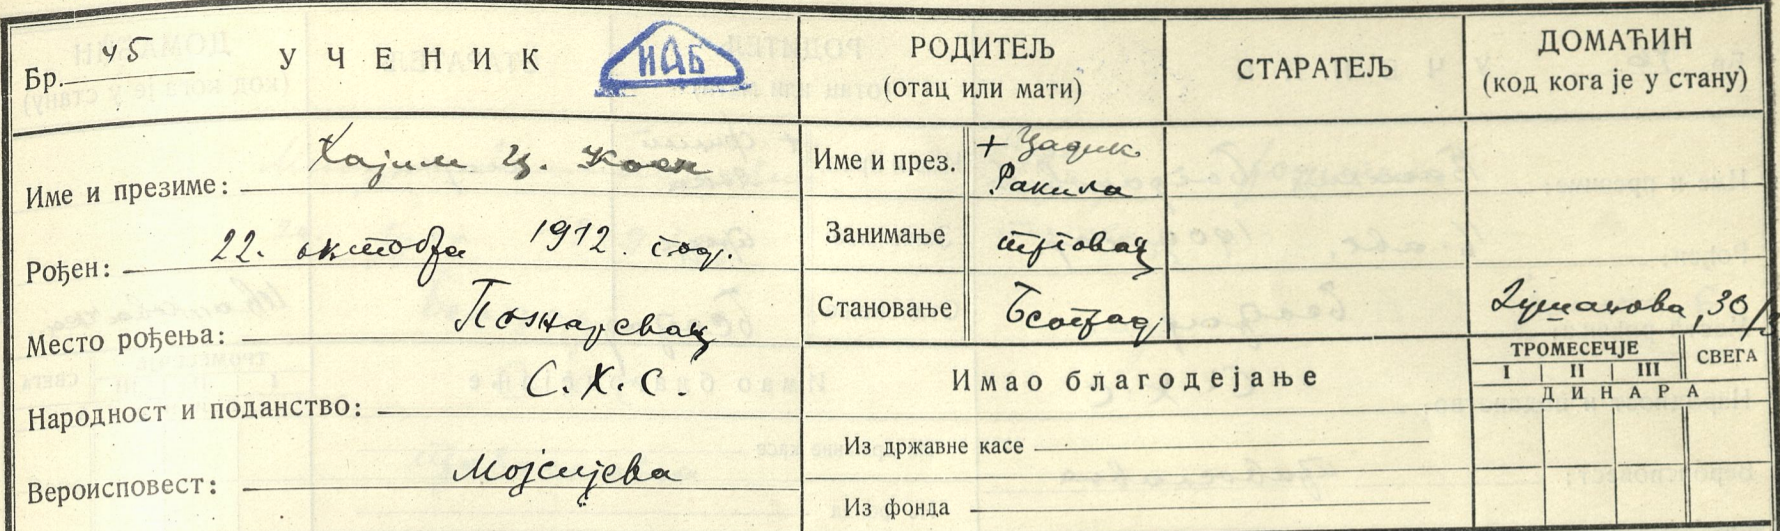 Бр. 45 УЧЕНИК
ИАБ
РОДИТЕЉ
(отац или мати)
СТАРАТЕЉ
ДОМАЋИН
(код кога је у стану)
Име и презиме: Хајим Ц. Коен
Рођен: 22. октобра 1912. год.
Место рођења: Пожаревац
Народност и поданство: С.Х.С.
Вероисповест: Мојсијева
Име и през. + Цадик
Ракила
Занимање трговац
Становање Београд
Душанова, 30/
Имао благодејање
Из државне касе
Из фонда
ТРОМЕСЕЧЈЕ СВЕГА
I II III
ДИНАРА